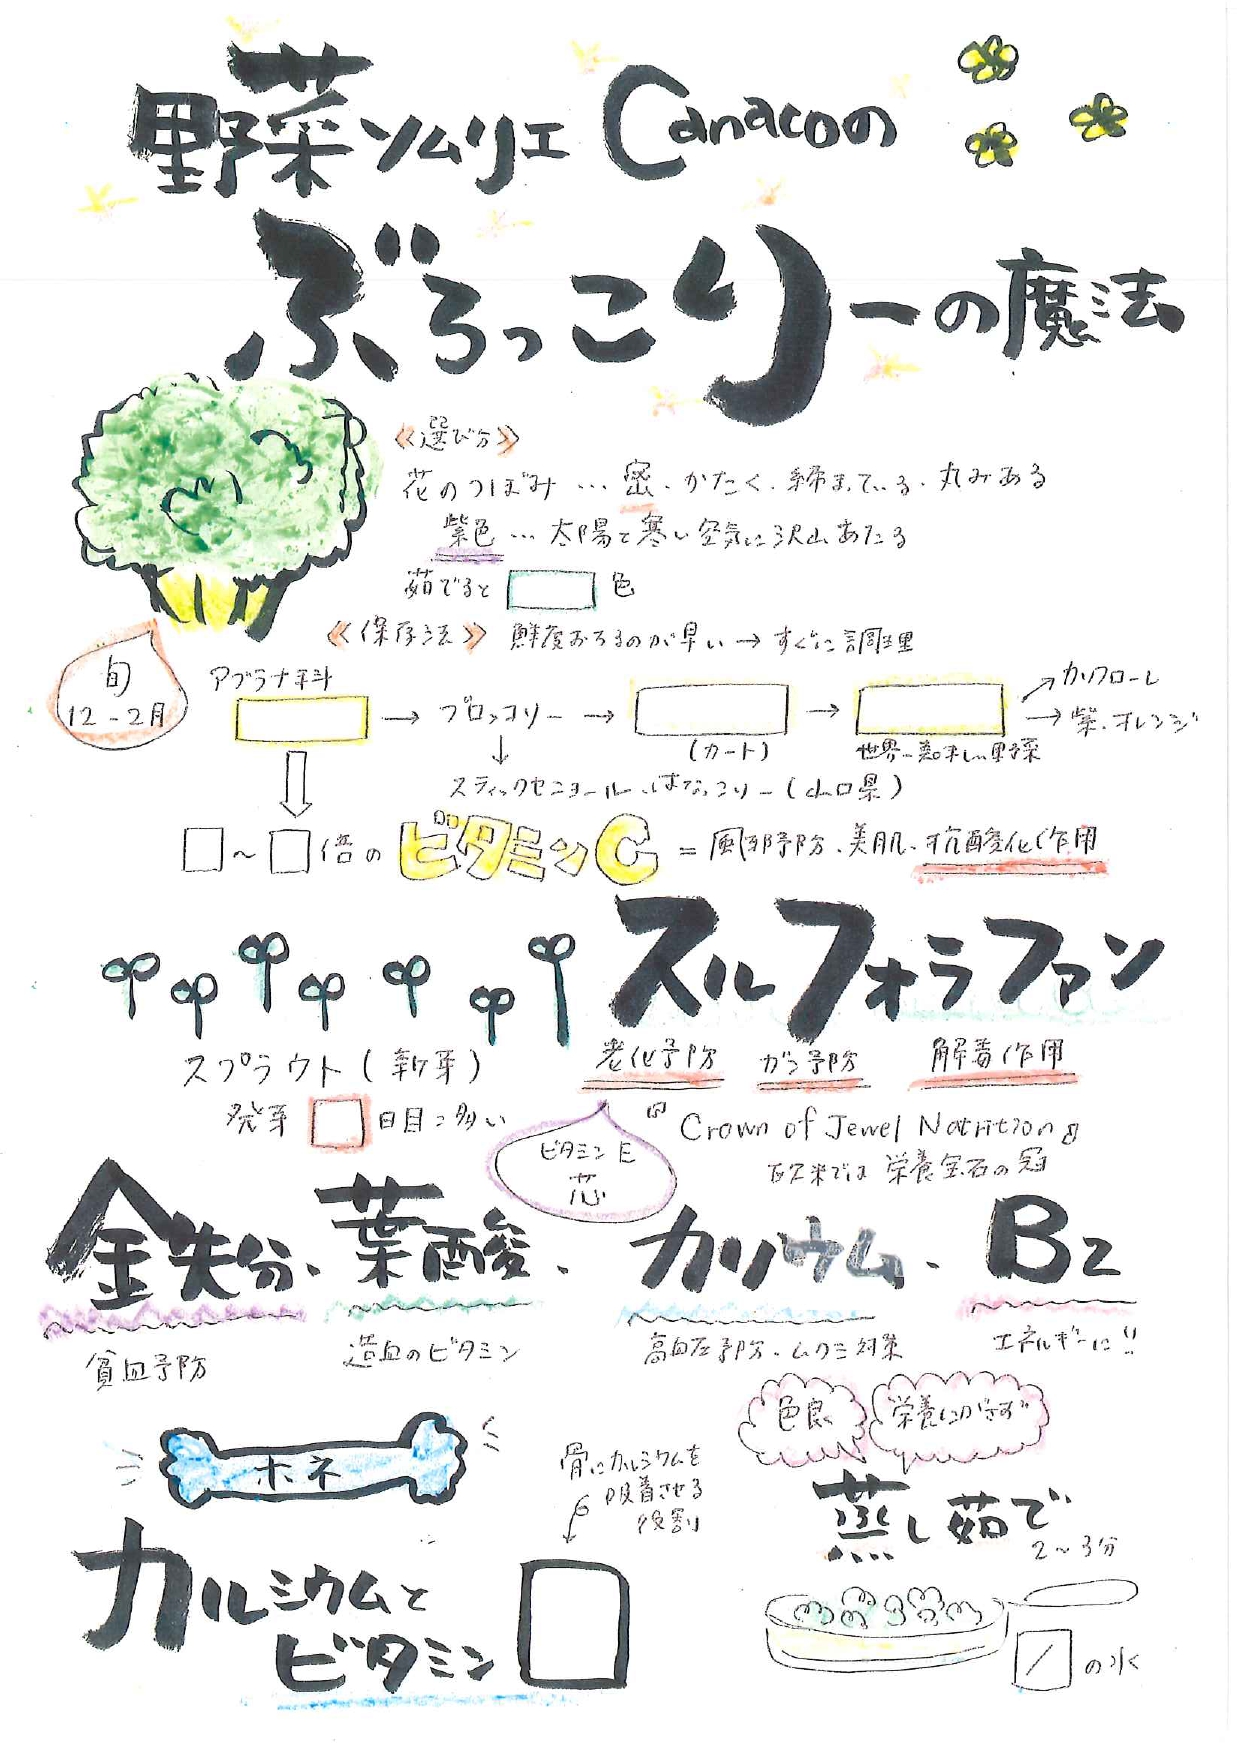 野菜ソムリエ Canacoの
ぶろっこりーの魔法
《選び方》
花のつぼみ…密・かたく・締まっている・丸みある
紫色…太陽と寒い空気に沢山あたる
茹でると 色
《保存法》 鮮度おちるのが早い→すぐに調理
旬
12-2月
アブラナ科
→ ブロッコリー → → カリフローレ
→紫・オレンジ
(カート)
世界一美味しい野菜
スティックセニョール・はなっこりー(山口県)
～ 倍の ビタミンC = 風邪予防、美肌、抗酸化作用
スルフォラファン
スプラウト(新芽)
老化予防 ガン予防 解毒作用
発芽 日目に多い
ビタミンE
芯
『Crown of Jewel Natrition』
欧米では栄養宝石の冠
金失分、葉酸、カリウム、B2
貧血予防
造血のビタミン
高血圧予防・ムクミ対策
エネルギーに!!
色良
栄養にがさず
ホネ
骨にカルシウムを
吸着させる
役割
蒸し茹で
2～3分
カルシウムと
ビタミン
/ の水